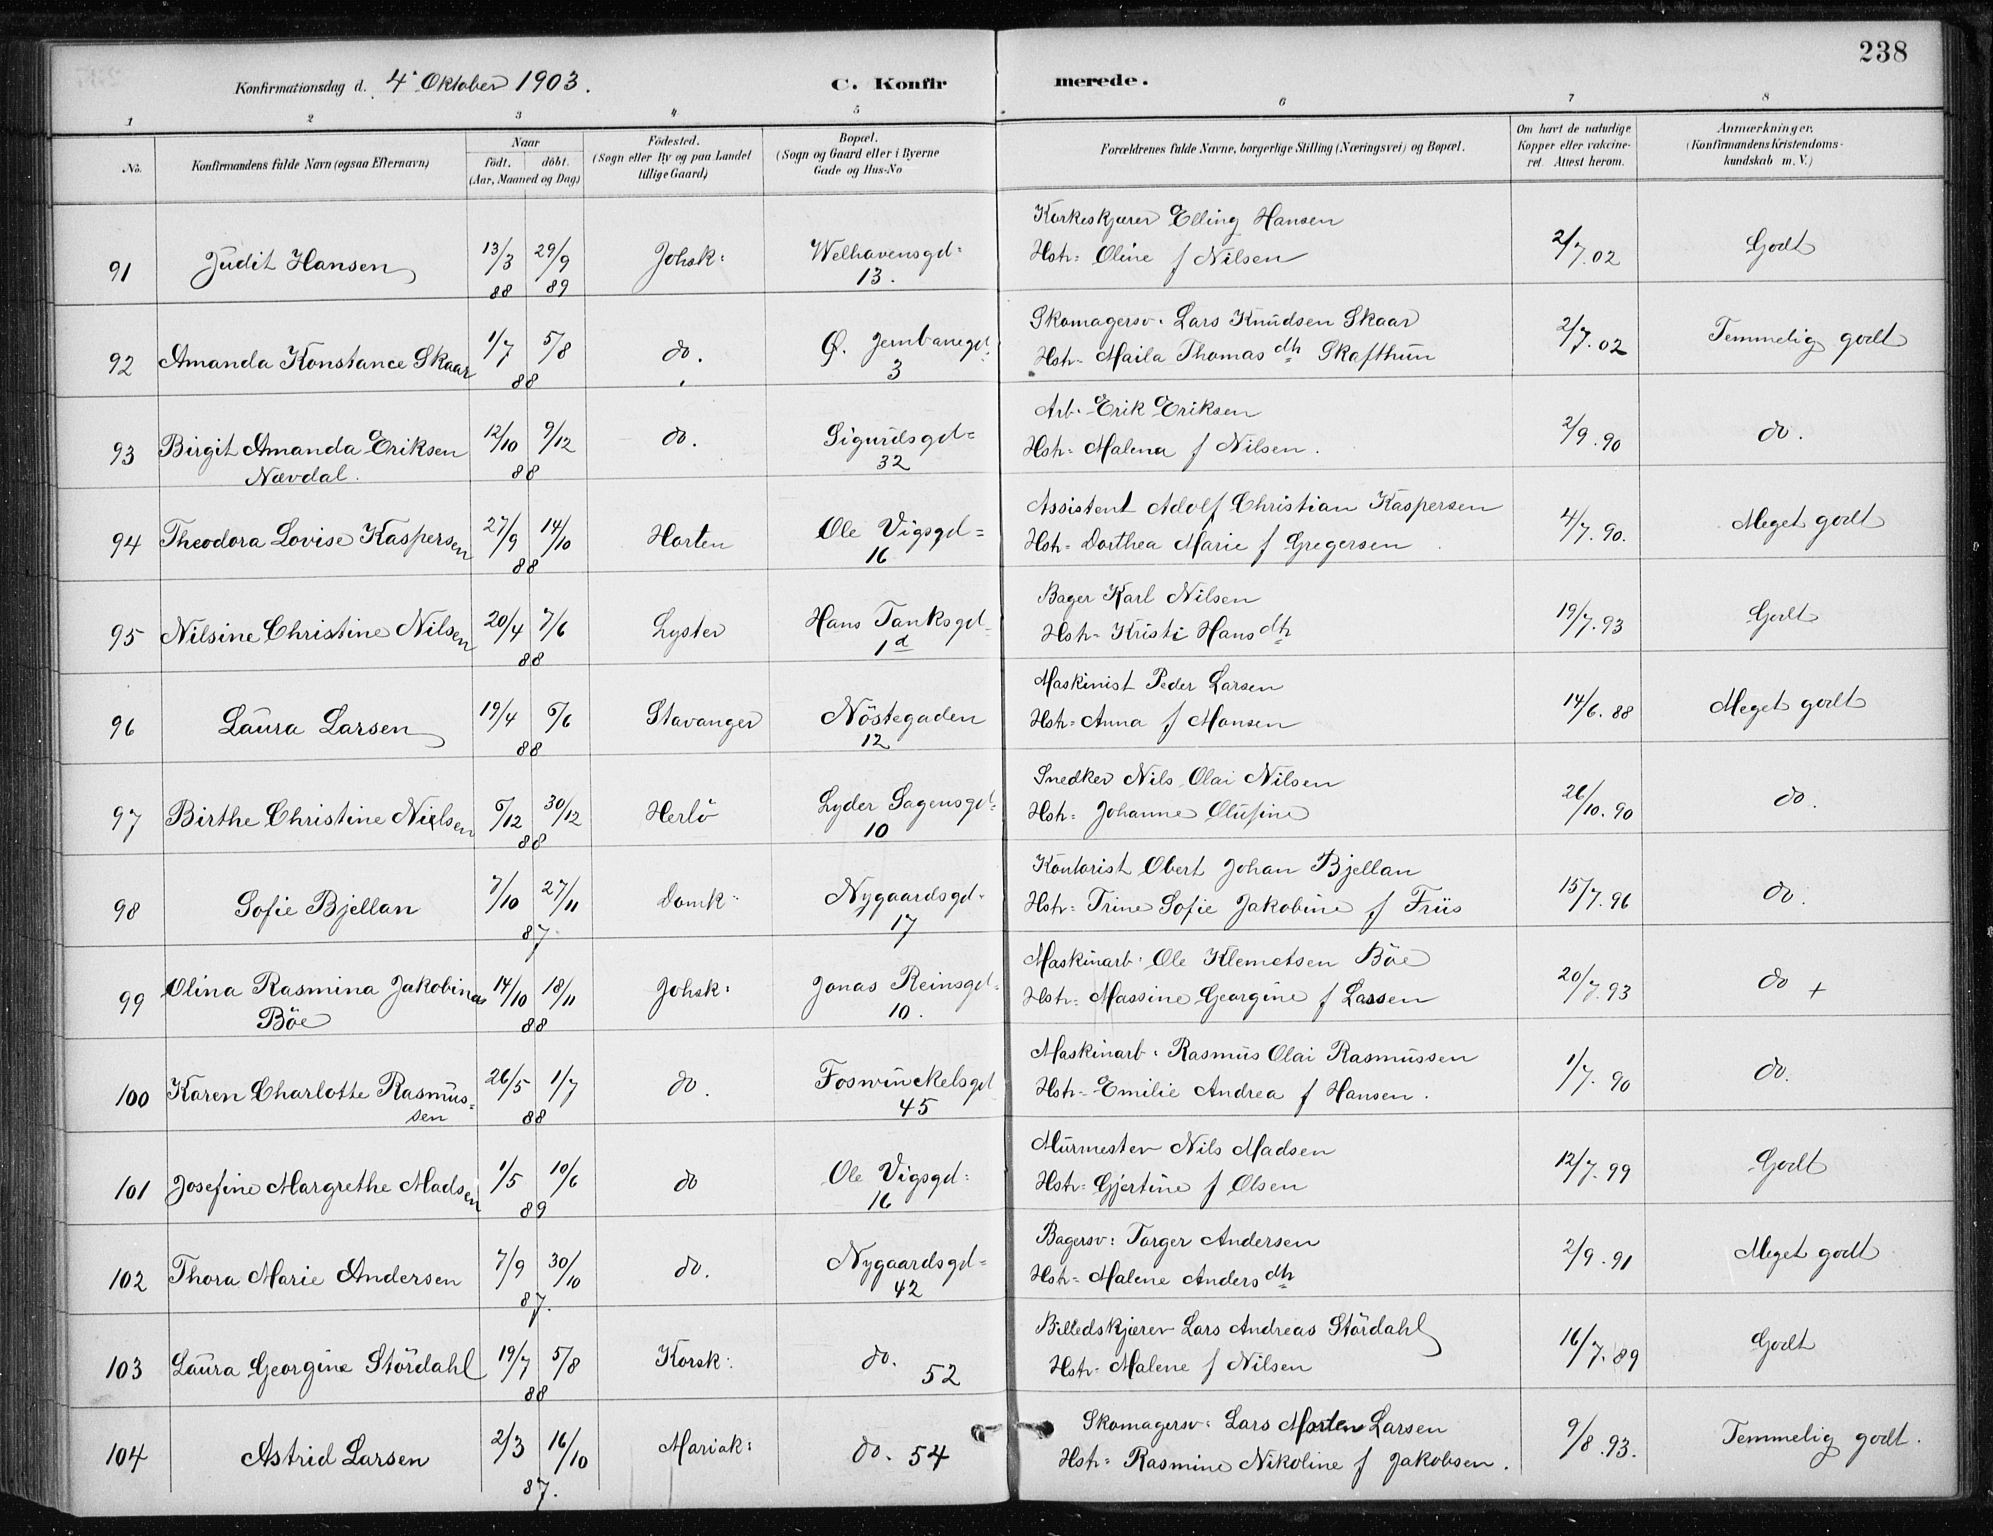 238
Konfirmationsdag d. 4' Oktober 1903. C. Konfirmerede.
1 2 3 4 5 6 7 8
No. Konfirmandens fulde Navn (ogsaa Efternavn) Naar födt. döbt. (Aar, Maaned og Dag) Födested. (Sogn eller By og paa Landet tillige Gaard) Bopæl. (Sogn og Gaard eller i Byerne Gade og Hus-No Forældrenes fulde Navne, borgerlige Stilling (Næringsvei) og Bopæl. Om havt de naturlige Kopper eller vakcineret. Attest herom. Anmærkninger. (Konfirmandens Kristendomskundskab m. V.)
Korkeskjærer Elling Hansen
91 Judit Hansen 13/3 88 29/9 89 Johsk: Welhavensgd= 13. Hstr= Oline f Nilsen 2/7.02 Godt
Skomagersv. Lars Knudsen Skaar
92 Amanda Konstance Skaar 1/7 5/8 88 do. Ø. Jernbanegd= 3 Hstr= Maila Thomasdtr Skafthun 2/7.02 Temmelig godt
Arb. Erik Eriksen
93 Birgit Amanda Eriksen 12/10 9/12 88 do. Sigurdsgd= 32 Hstr= Malena f Nilsen. 2/9.90 do.
Nævdal.
Assistent Adolf Christian Kaspersen
94 Theodora Lovise Kaspersen 27/9 14/10 88 Horten Ole Vigsgd= 16 Hstr= Dorthea Marie f Gregersen 4/7.90. Meget godt
Bager Karl Nilsen
95 Nilsine Christine Nilsen 20/4 7/6 88 Lyster Hans Tanksgd= 1d Hstr= Kristi Hansdtr 19/7.93 Godt
Maskinist Peder Larsen
96 Laura Larsen 19/4 6/6 88 Stavanger Nöstegaden 12 Hstr= Anna f Monsen 14/6.88 Meget godt
Snedker Nils Olai Nilsen
97 Birthe Christine Nielsen 6/12 30/12 88 Herlö Lyder Sagensgd= 10 Hstr= Johanne Olufine 26/10.90 do.
Kontorist Obert Johan Bjellan
98 Sofie Bjellan 7/10 27/11 87 Domk: Nygaardsgd= 17 Hstr= Trine Sofie Jakobine f Friis 15/7.96 do.
Maskinarb. Ole Klemetsen Böe
99 Olina Rasmina Jakobina 14/10 18/11 88 Johsk: Jonas Reinsgd= 10. Hstr= Massine Georgine f Lassen 20/7.93 do +
Böe
Maskinarb: Rasmus Olai Rasmussen
100 Karen Charlotte Rasmus= 26/5 1/7 88 do. Foswinckelsgd 45 Hstr= Emilie Andrea f Hansen. 1/7.90 do.
sen
Murmester Nils Madsen
101 Josefine Margrethe Madsen 1/5 10/6 89 do Ole Vigsgd: 16 Hstr= Gjertine f Olsen 12/7.99 Godt
Bagersv: Torger Andersen
102 Thora Marie Andersen 7/9 30/10 87. do. Nygaardsgd= 42 Hstr= Malene Andersdtr 2/9.91 Meget godt
Billedskjærer Lars Andreas Stördahl
103 Laura Georgine Stördahl 19/7 5/8 88 Korsk: do. 52 Hstr= Malene f Nilsen 16/7.89 Godt
Skomagersv: Lars Morten Larsen
104 Astrid Larsen 2/3 16/10 87. Mariak: do. 54 Hstr= Rasmine Nikoline f Jakobsen. 9/8.93. Temmelig godt.